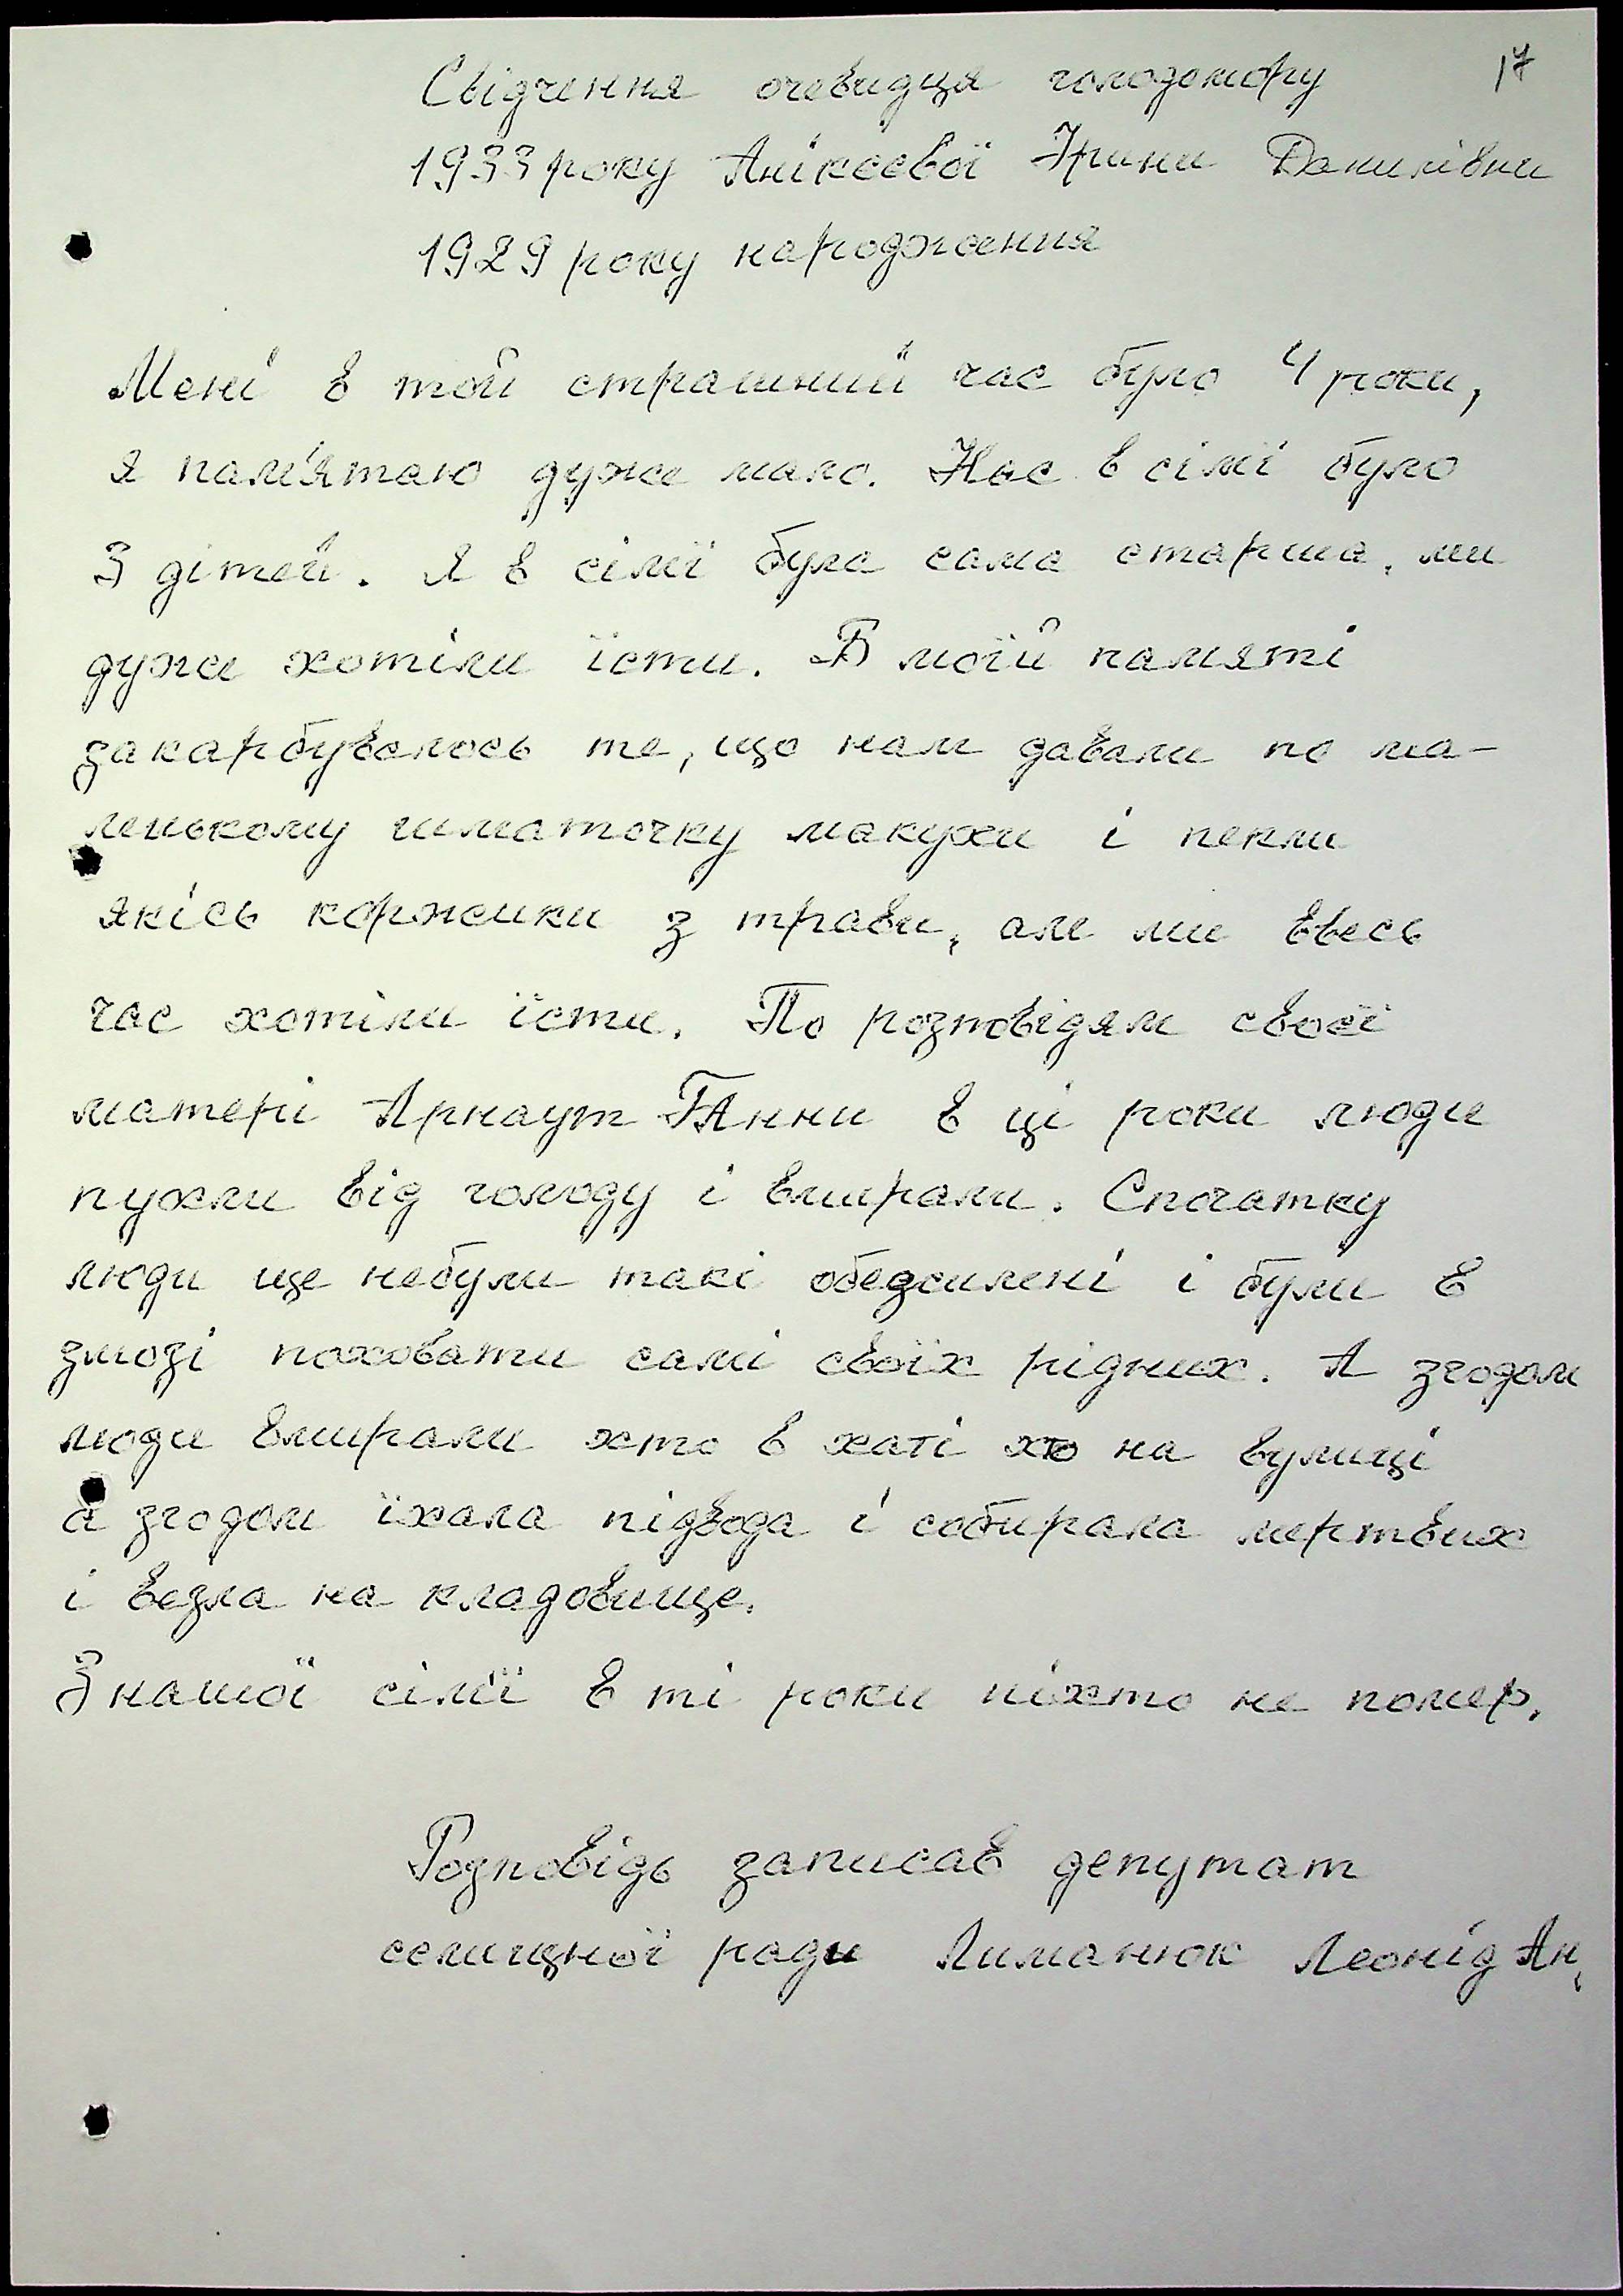 17
Свідчення очевидця голодомору
1933 року Анікєєвої Ірини Данилівни
1929 року народження
Мені в той страшний час було 4 роки,
я пам'ятаю дуже мало. Нас в сімї було
3 дітей. Я в сімї була сама старша, ми
дуже хотіли їсти. В моїй памяті
закарбувалось те, що нам давали по ма-
ленькому шматочку макухи і пекли
якісь коржики з трави, але ми ввесь
час хотіли їсти. По розповідям своєї
матері Арнаут Ганни в ці роки люди
пухли від голоду і вмирали. Спочатку
люди ще небули такі обезсилені і були в
змозі поховати самі своїх рідних. А згодом
люди вмирали хто в хаті хто на вулиці
а згодом їхала підвода і собирала мертвих
і везла на кладовище.
З нашої сімї в ті роки ніхто не помер.
Розповідь записав депутат
селищної ради Лиманюк Леонід Ан.